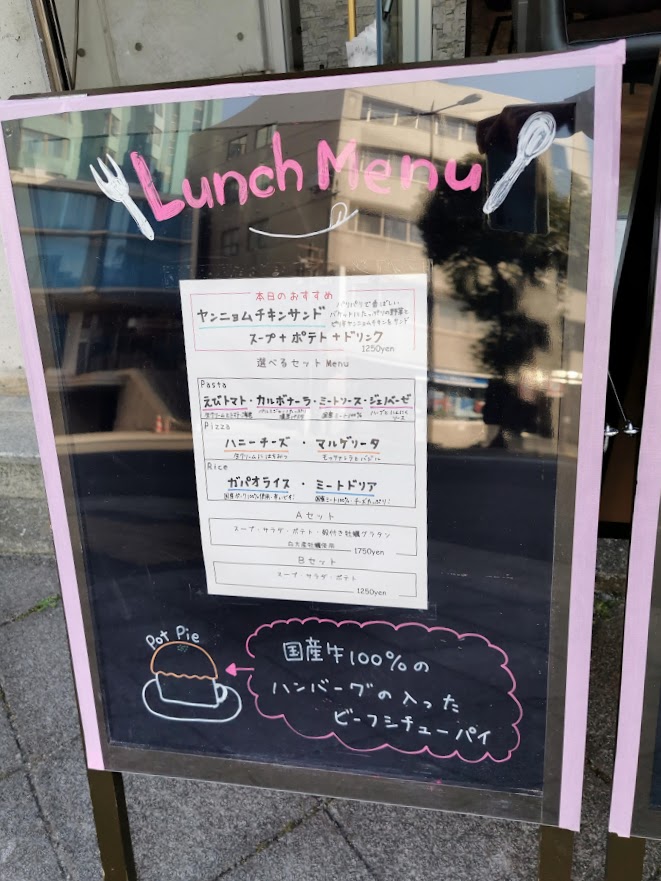 Lunch Menu
本日のおすすめ
ヤンニョムチキンサンド
パリパリで香ばしい
バゲットにたっぷりの野菜と
ピリ辛ヤンニョムチキンをサンド
スープ+ポテト+ドリンク
1250yen
選べるセットMenu
Pasta
えびトマト・カルボナーラ・ミートソース・ジェノベーゼ
国産ミート100%
Pizza
ハニーチーズ ・ マルゲリータ
生クリームにはちみつ
モッツァレラとバジル
Rice
ガパオライス ・ ミートドリア
国産ミート100%・チーズたっぷり!
Aセット
スープ・サラダ・ポテト・殻付き牡蠣グラタン
1750yen
Bセット
スープ・サラダ・ポテト
1250yen
Pot Pie
国産牛100%の
ハンバーグの入った
ビーフシチューパイ